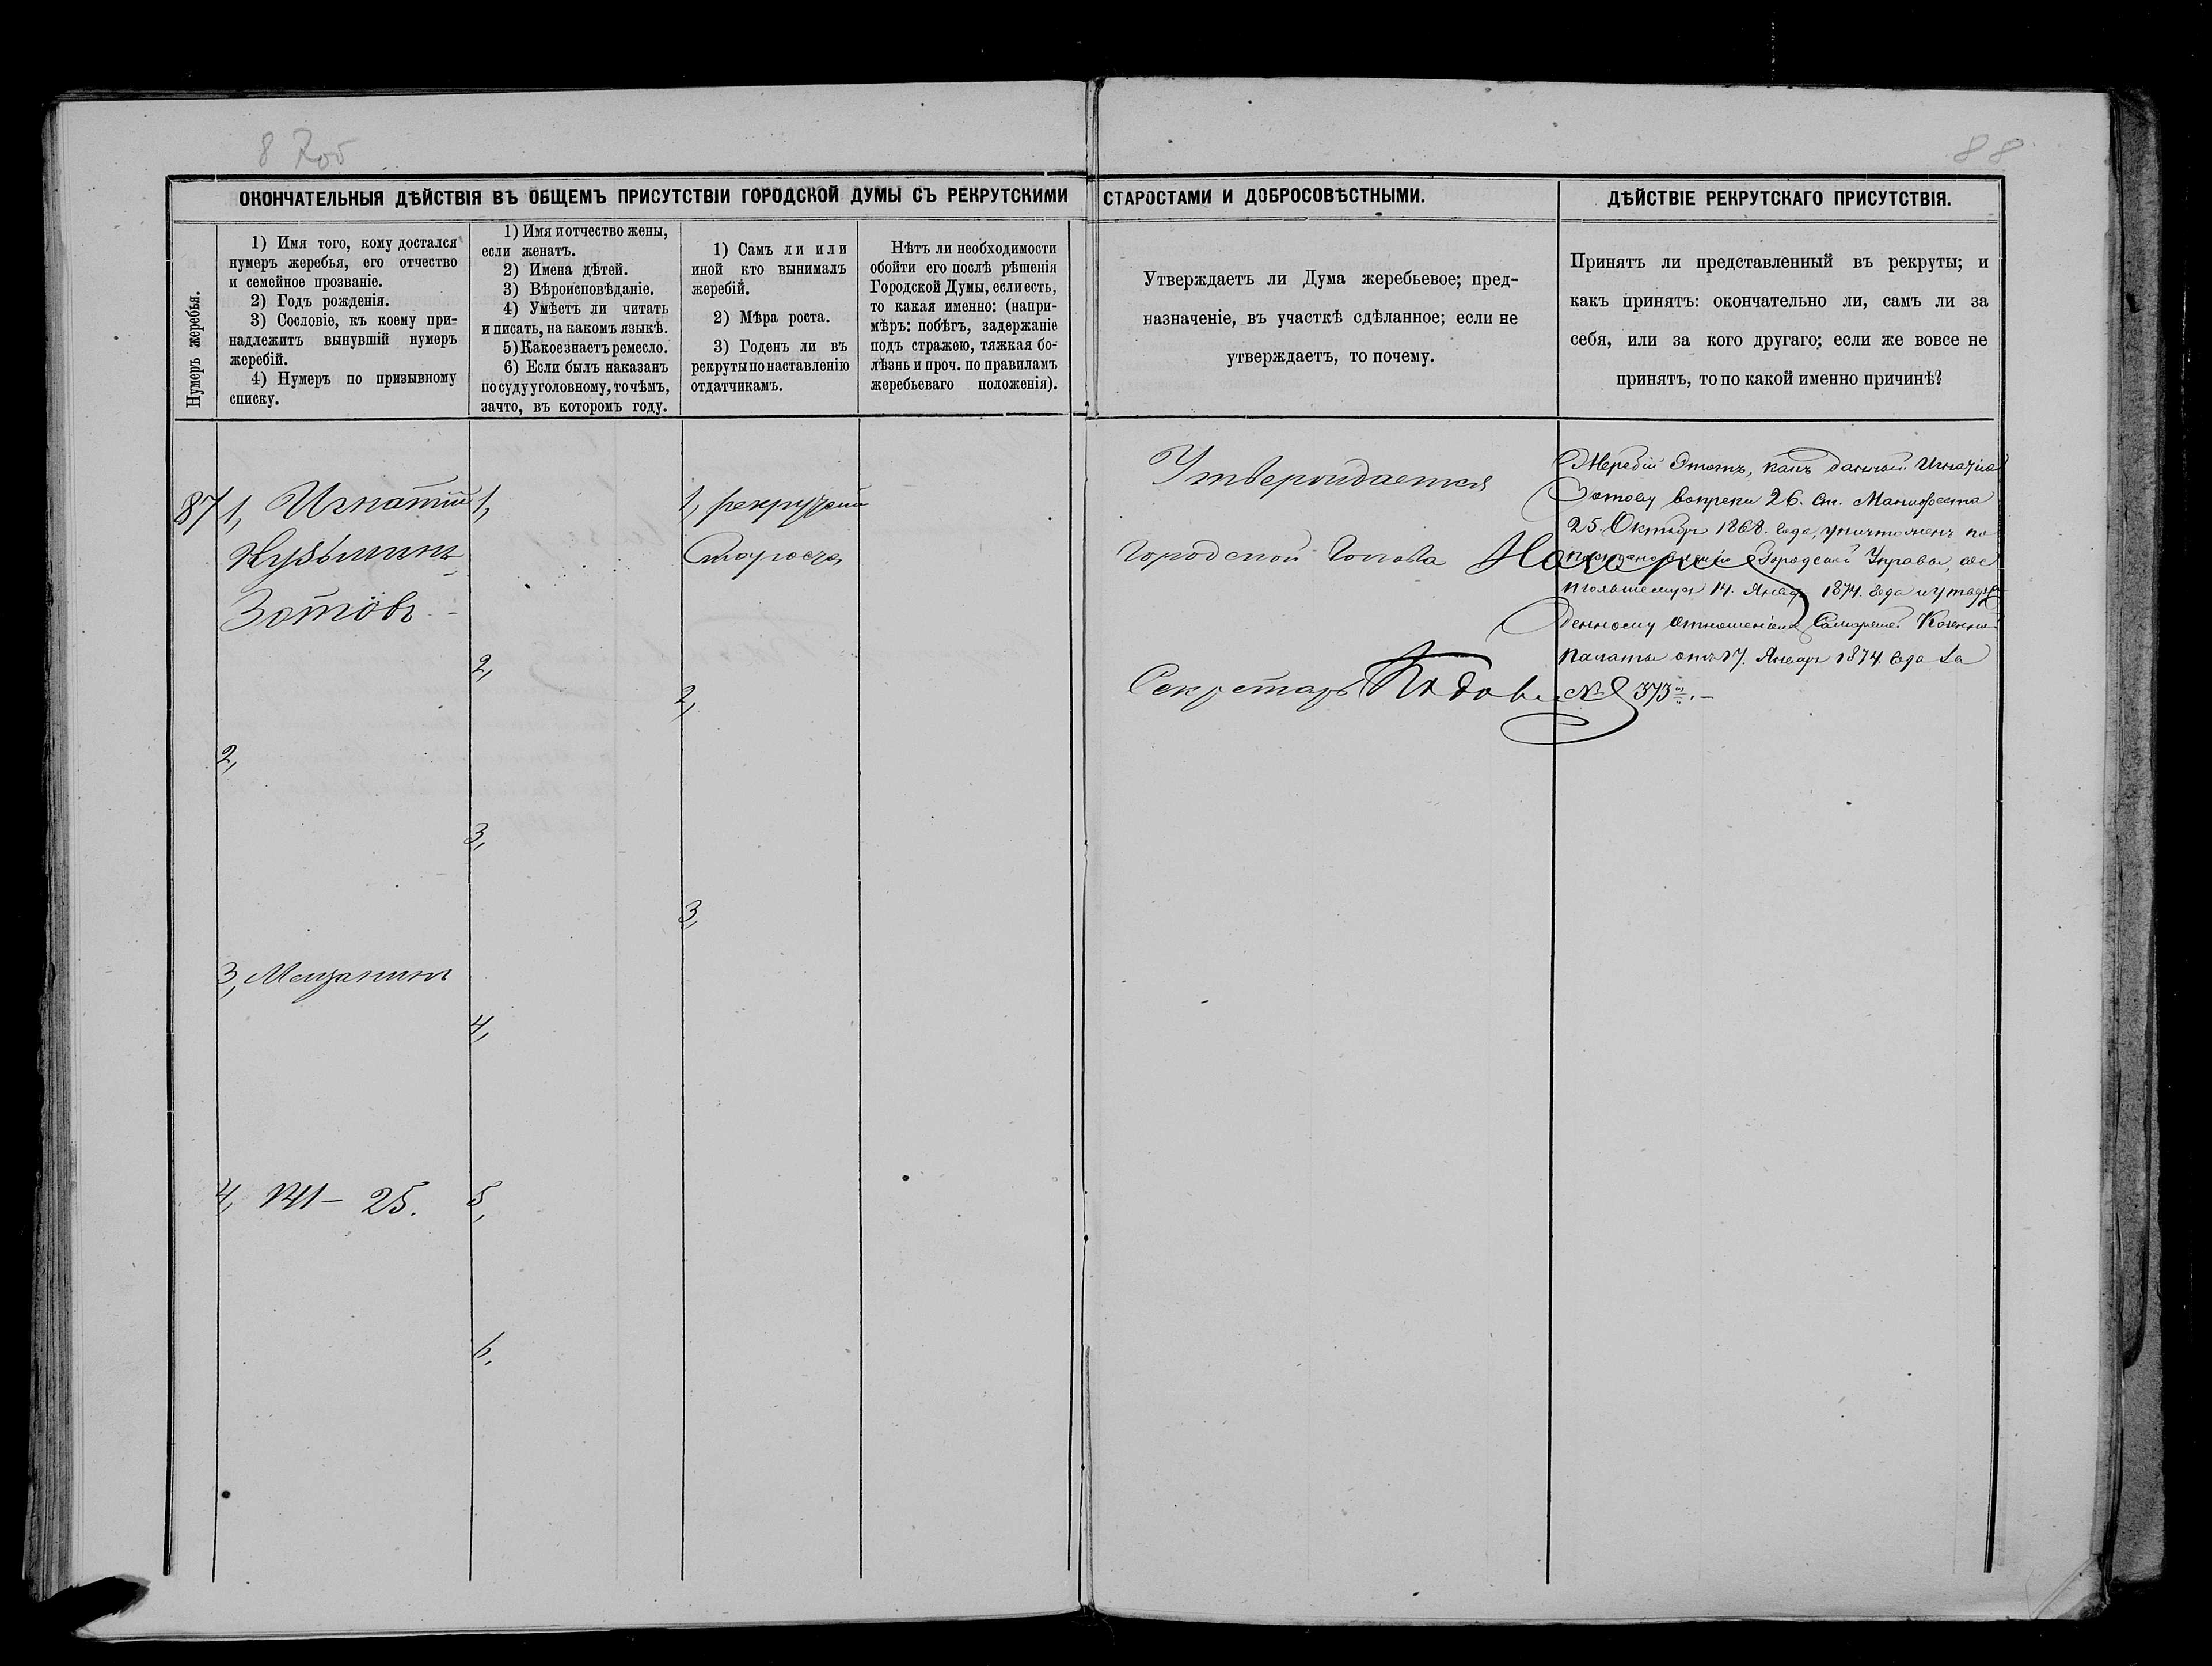 88
ОКОНЧАТЕЛЬНЫЯ ДѢЙСТВІЯ ВЪ ОБЩЕМЪ ПРИСУТСТВІИ ГОРОДСКОЙ ДУМЫ СЪ РЕКРУТСКИМИ СТАРОСТАМИ И ДОБРОСОВѢСТНЫМИ.
ДѢЙСТВІЕ РЕКРУТСКАГО ПРИСУТСТВІЯ.
Нумеръ жеребья.
1) Имя того, кому достался
нумеръ жеребья, его отчество
и семейное прозваніе.
2) Годъ рожденія.
3) Сословіе, къ коему при-
надлежитъ вынувшій нумеръ
жеребій.
4) Нумеръ по призывному
списку.
1) Имя и отчество жены,
если женатъ.
2) Имена дѣтей.
3) Вѣроисповѣданіе.
4) Умѣетъ ли читать
и писать, на какомъ языкѣ.
5) Какое знаетъ ремесло.
6) Если былъ наказанъ
по суду уголовному, то чѣмъ,
за что, въ которомъ году.
1) Самъ ли или
иной кто вынималъ
жеребій.
2) Мѣра роста.
3) Годенъ ли въ
рекруты по наставленію
отдатчикамъ.
Нѣтъ ли необходимости
обойти его послѣ рѣшенія
Городской Думы, если есть,
то какая именно: (напри-
мѣръ: побѣгъ, задержаніе
подъ стражею, тяжкая бо-
лѣзнь и проч. по правиламъ
жеребьеваго положенія).
Утверждаетъ ли Дума жеребьевое; пред-
назначеніе, въ участкѣ сдѣланное; если не
утверждаетъ, то почему.
Принятъ ли представленный въ рекруты; и
какъ принятъ: окончательно ли, самъ ли за
себя, или за кого другаго; если же вовсе не
принятъ, то по какой именно причинѣ?
87
1, Игнатій
Кузьминъ
Зотовъ
2,
3, Мещанинъ
4, 141 – 25.
1,
2,
3,
4,
5,
6,
1, рекрутскій
Староста
2,
3,
Утверждается
Городской Голова
Секретарь
Жеребій этотъ, какъ данный Игнатію
Зотову вопреки 26. ст. Манифеста
25. Октября 1868. года, уничтоженъ по
постановленію Городской Управы, со
стоявшемуся 14. Января 1874. года и утверж
денному отношеніемъ Самарской Казенной
Палаты отъ 17. Января 1874 года за
№ 373.–